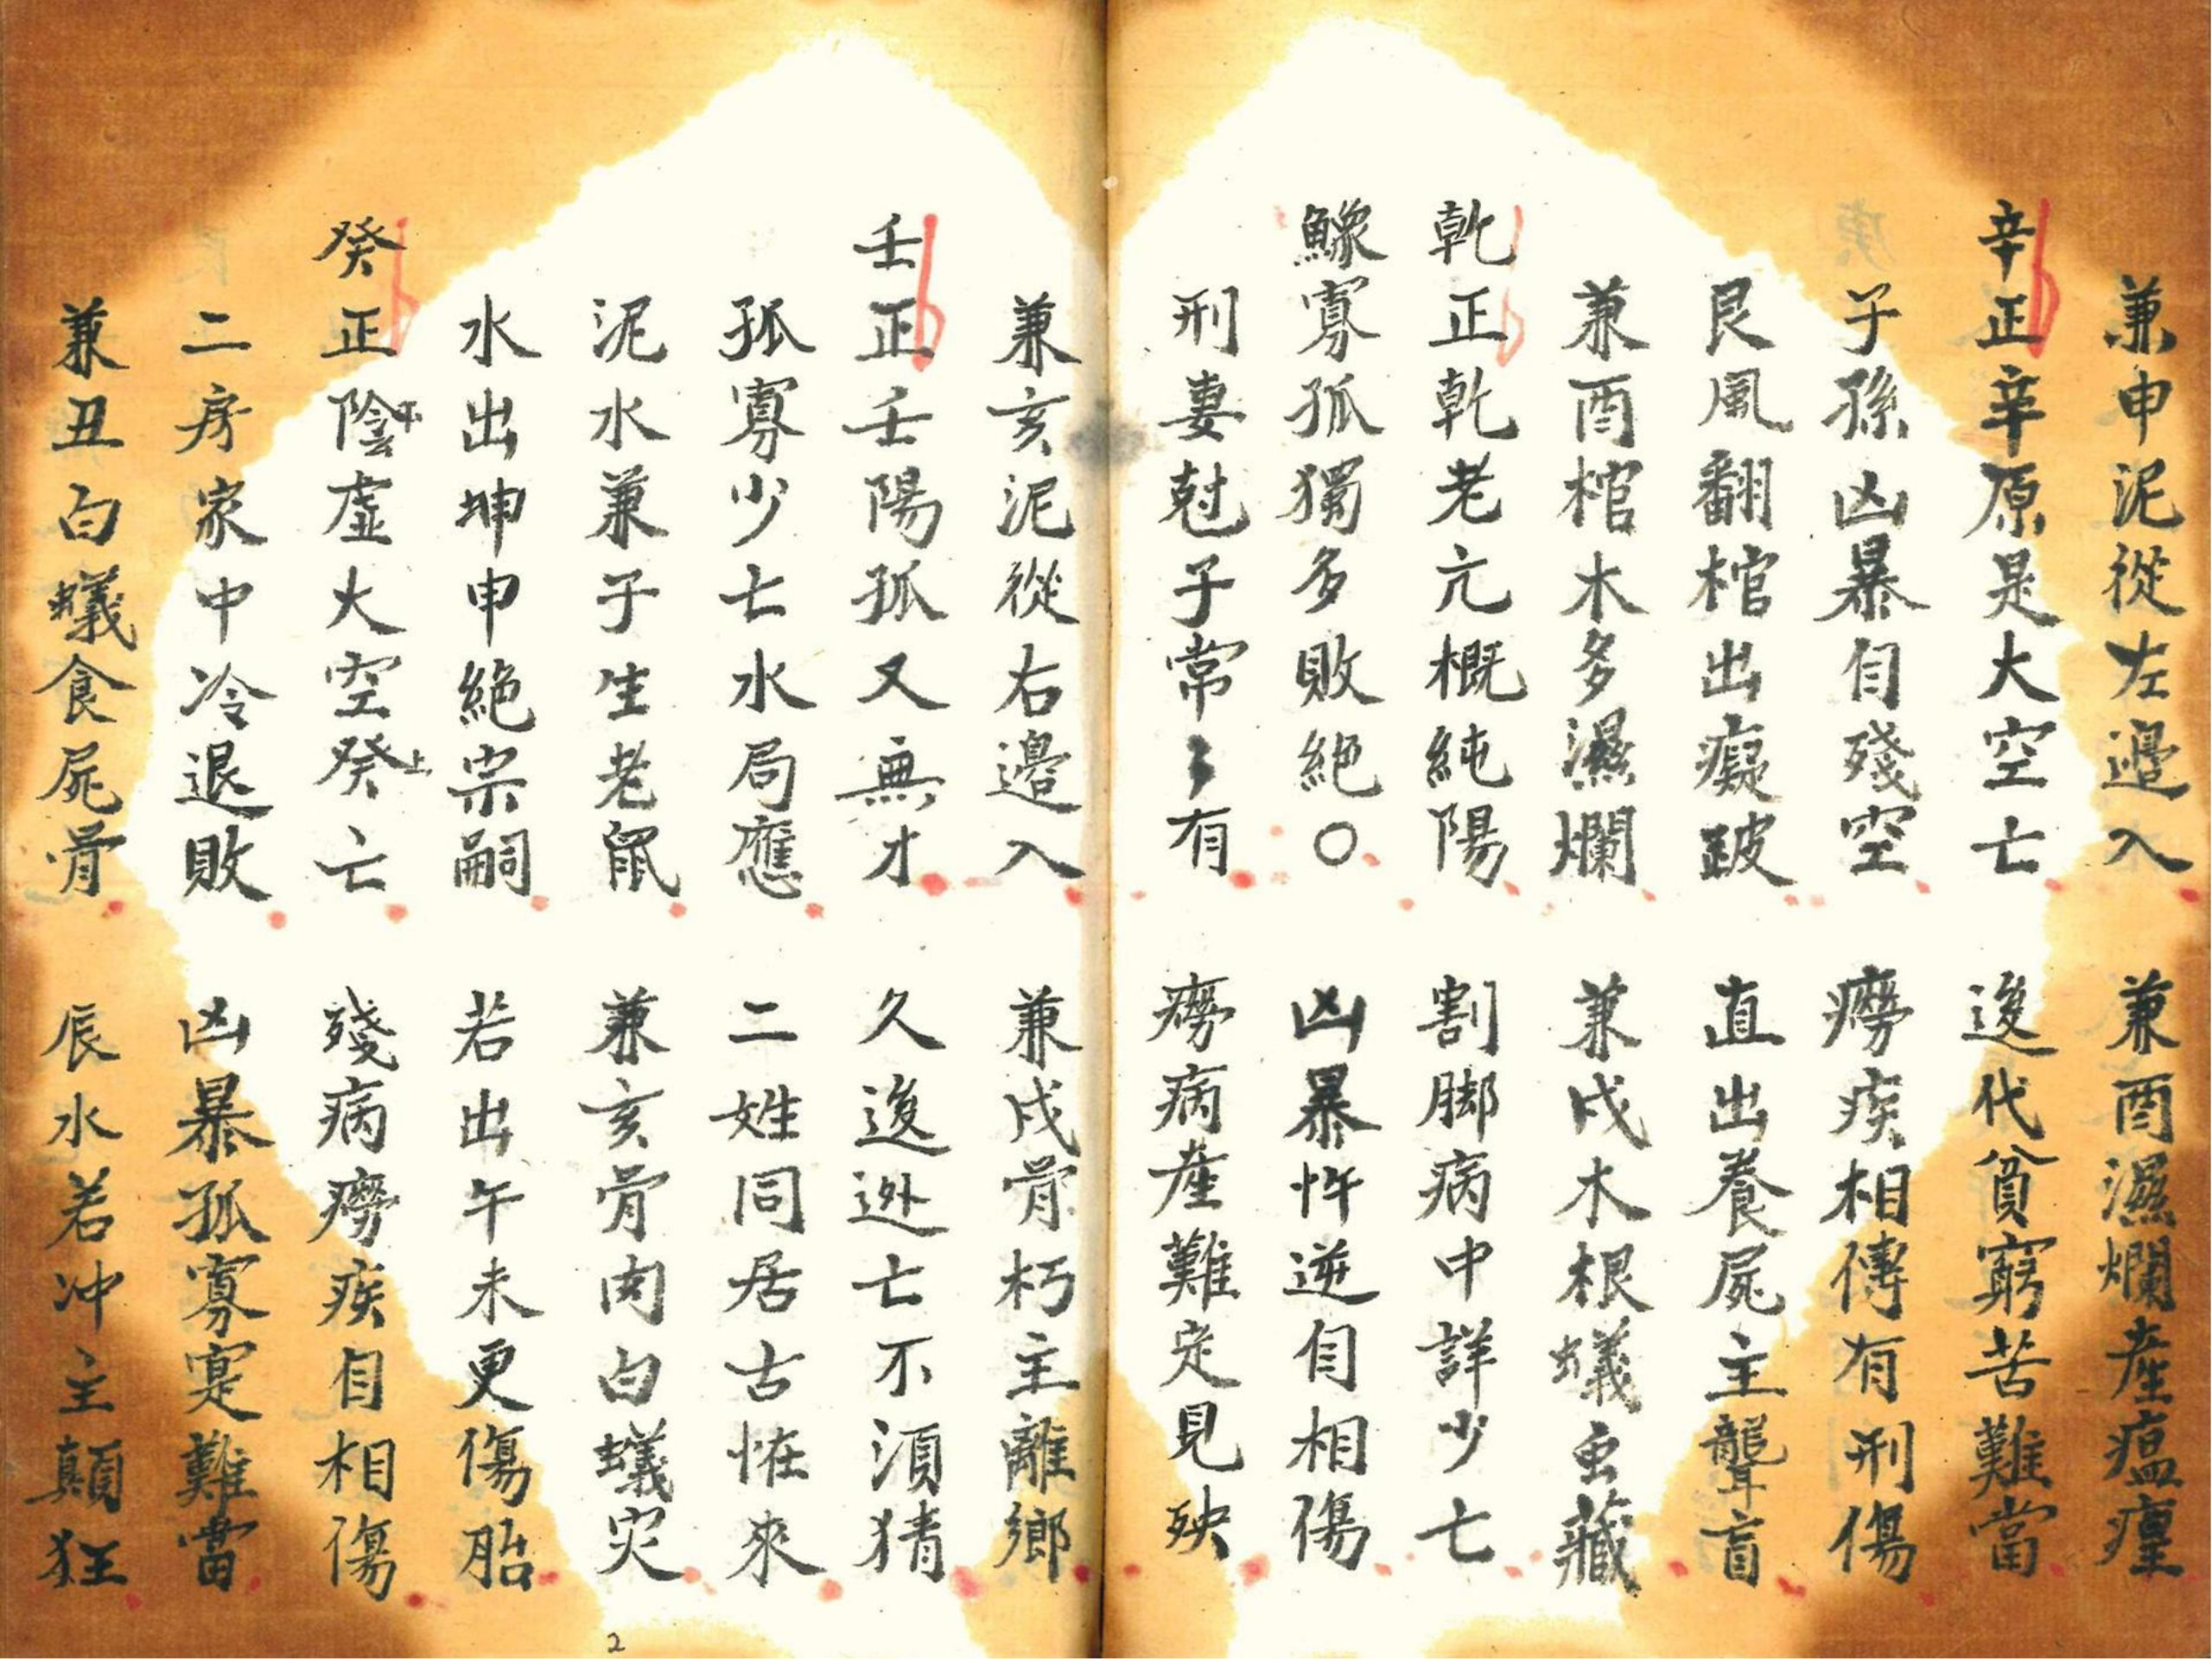 兼申泥從左邊入 兼酉濕爛產瘟㾮
辛正辛原是大空亡 後代貧窮苦難當
子孫凶暴自殘空 癆疾相傳有刑傷
艮風翻棺出癡跛 直出養屍主聾盲
兼酉棺木多濕爛 兼戌木根蟻虫藏
乾正乾老亢概純陽 割脚病中詳少亡
鰥寡孤獨多敗絕〇 凶暴忤逆自相傷
刑妻尅子常々有 癆病產難定見殃
兼亥泥從右邊入 兼戌骨朽主離鄉
壬正壬陽孤又無才 久後逊亡不須猜
孤寡少亡水局應 二姓同居古怪來
泥水兼子生老鼠 兼亥骨肉白蟻災
水出坤申絕宗嗣 若出午未更傷胎
癸正陰下虛大空癸上亡 殘病癆疾自相傷
二房家中冷退敗 凶暴孤寡寔難當
兼丑白蟻食屍骨 辰水若冲主顛狂
2